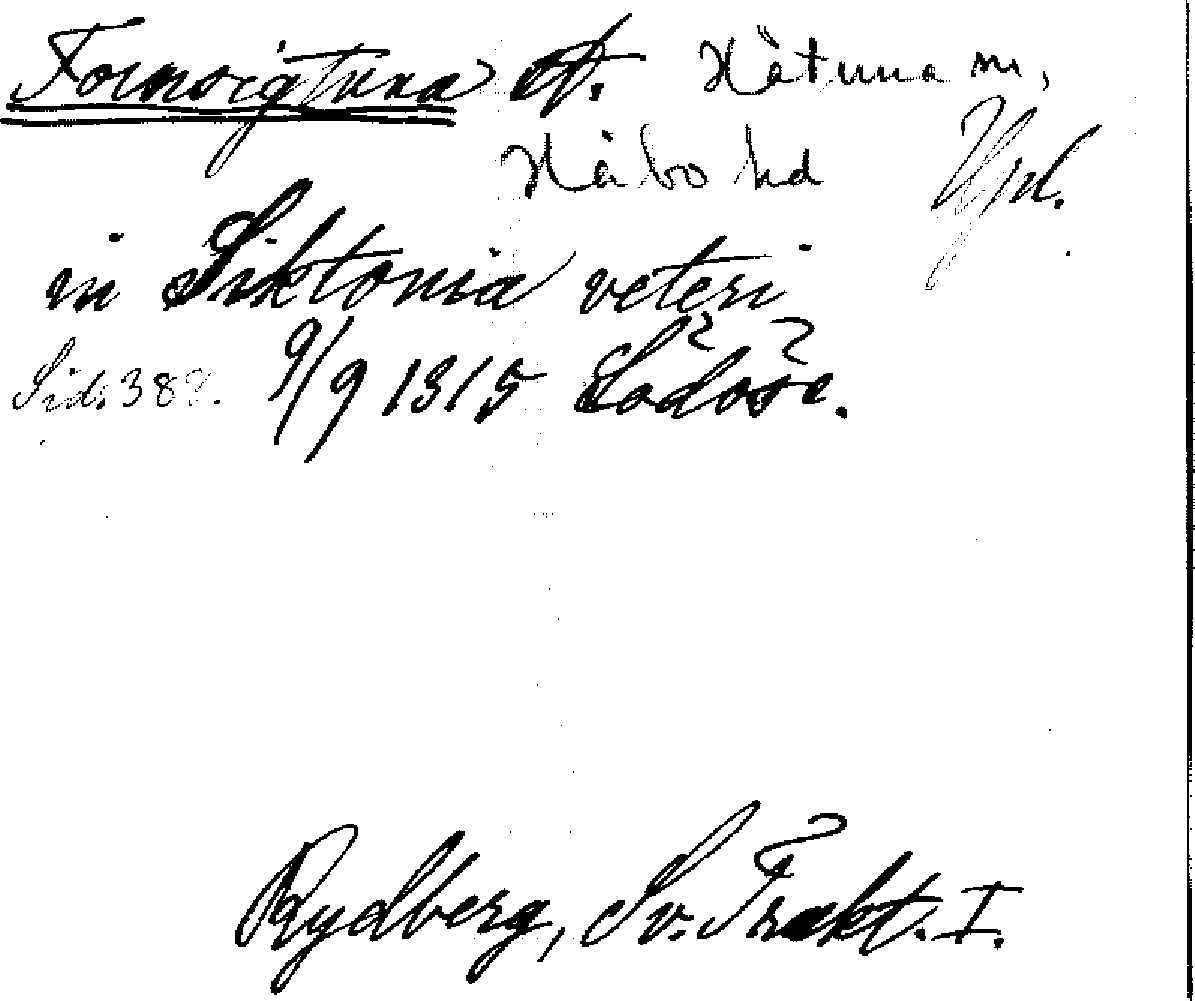 Fornsigtuna st. Håtuna sn,
Håbo hd Upl.
in Siktonia veteri
Sid. 388. 9/9 1315 Lödöse.
Rydberg, Sv. Trakt. I.